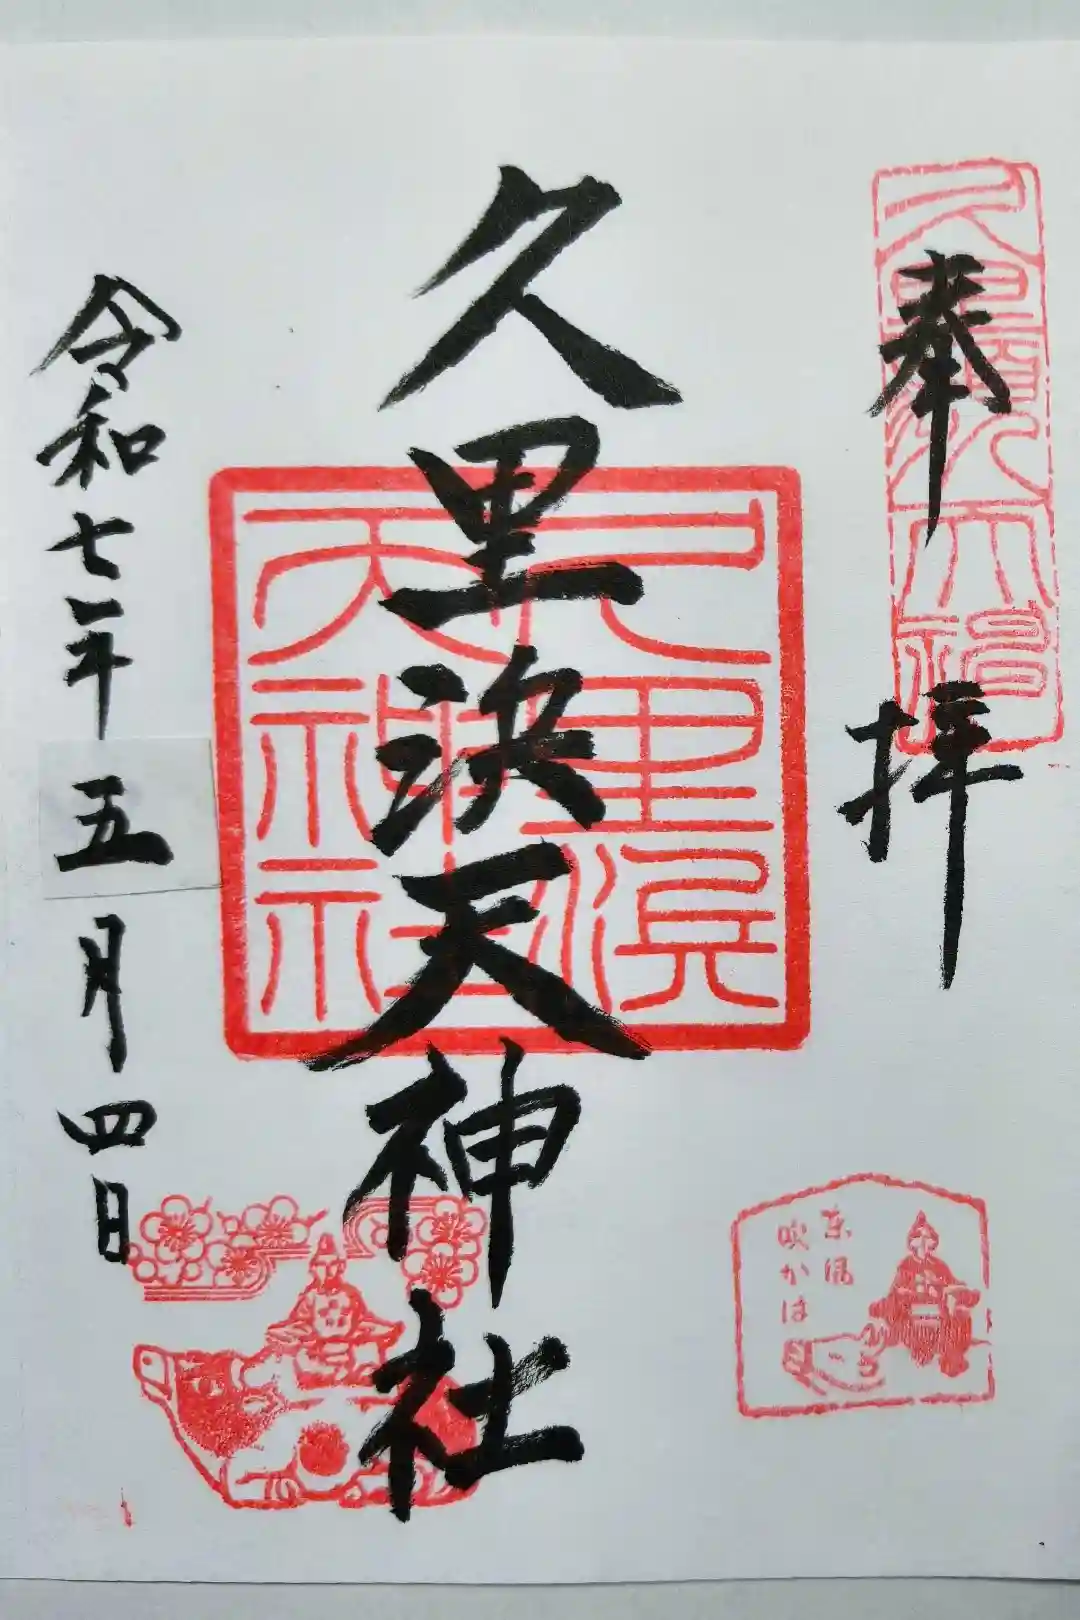 奉拝
久里浜天神社
久里浜
天神社
令和七年五月四日
東風
吹かは